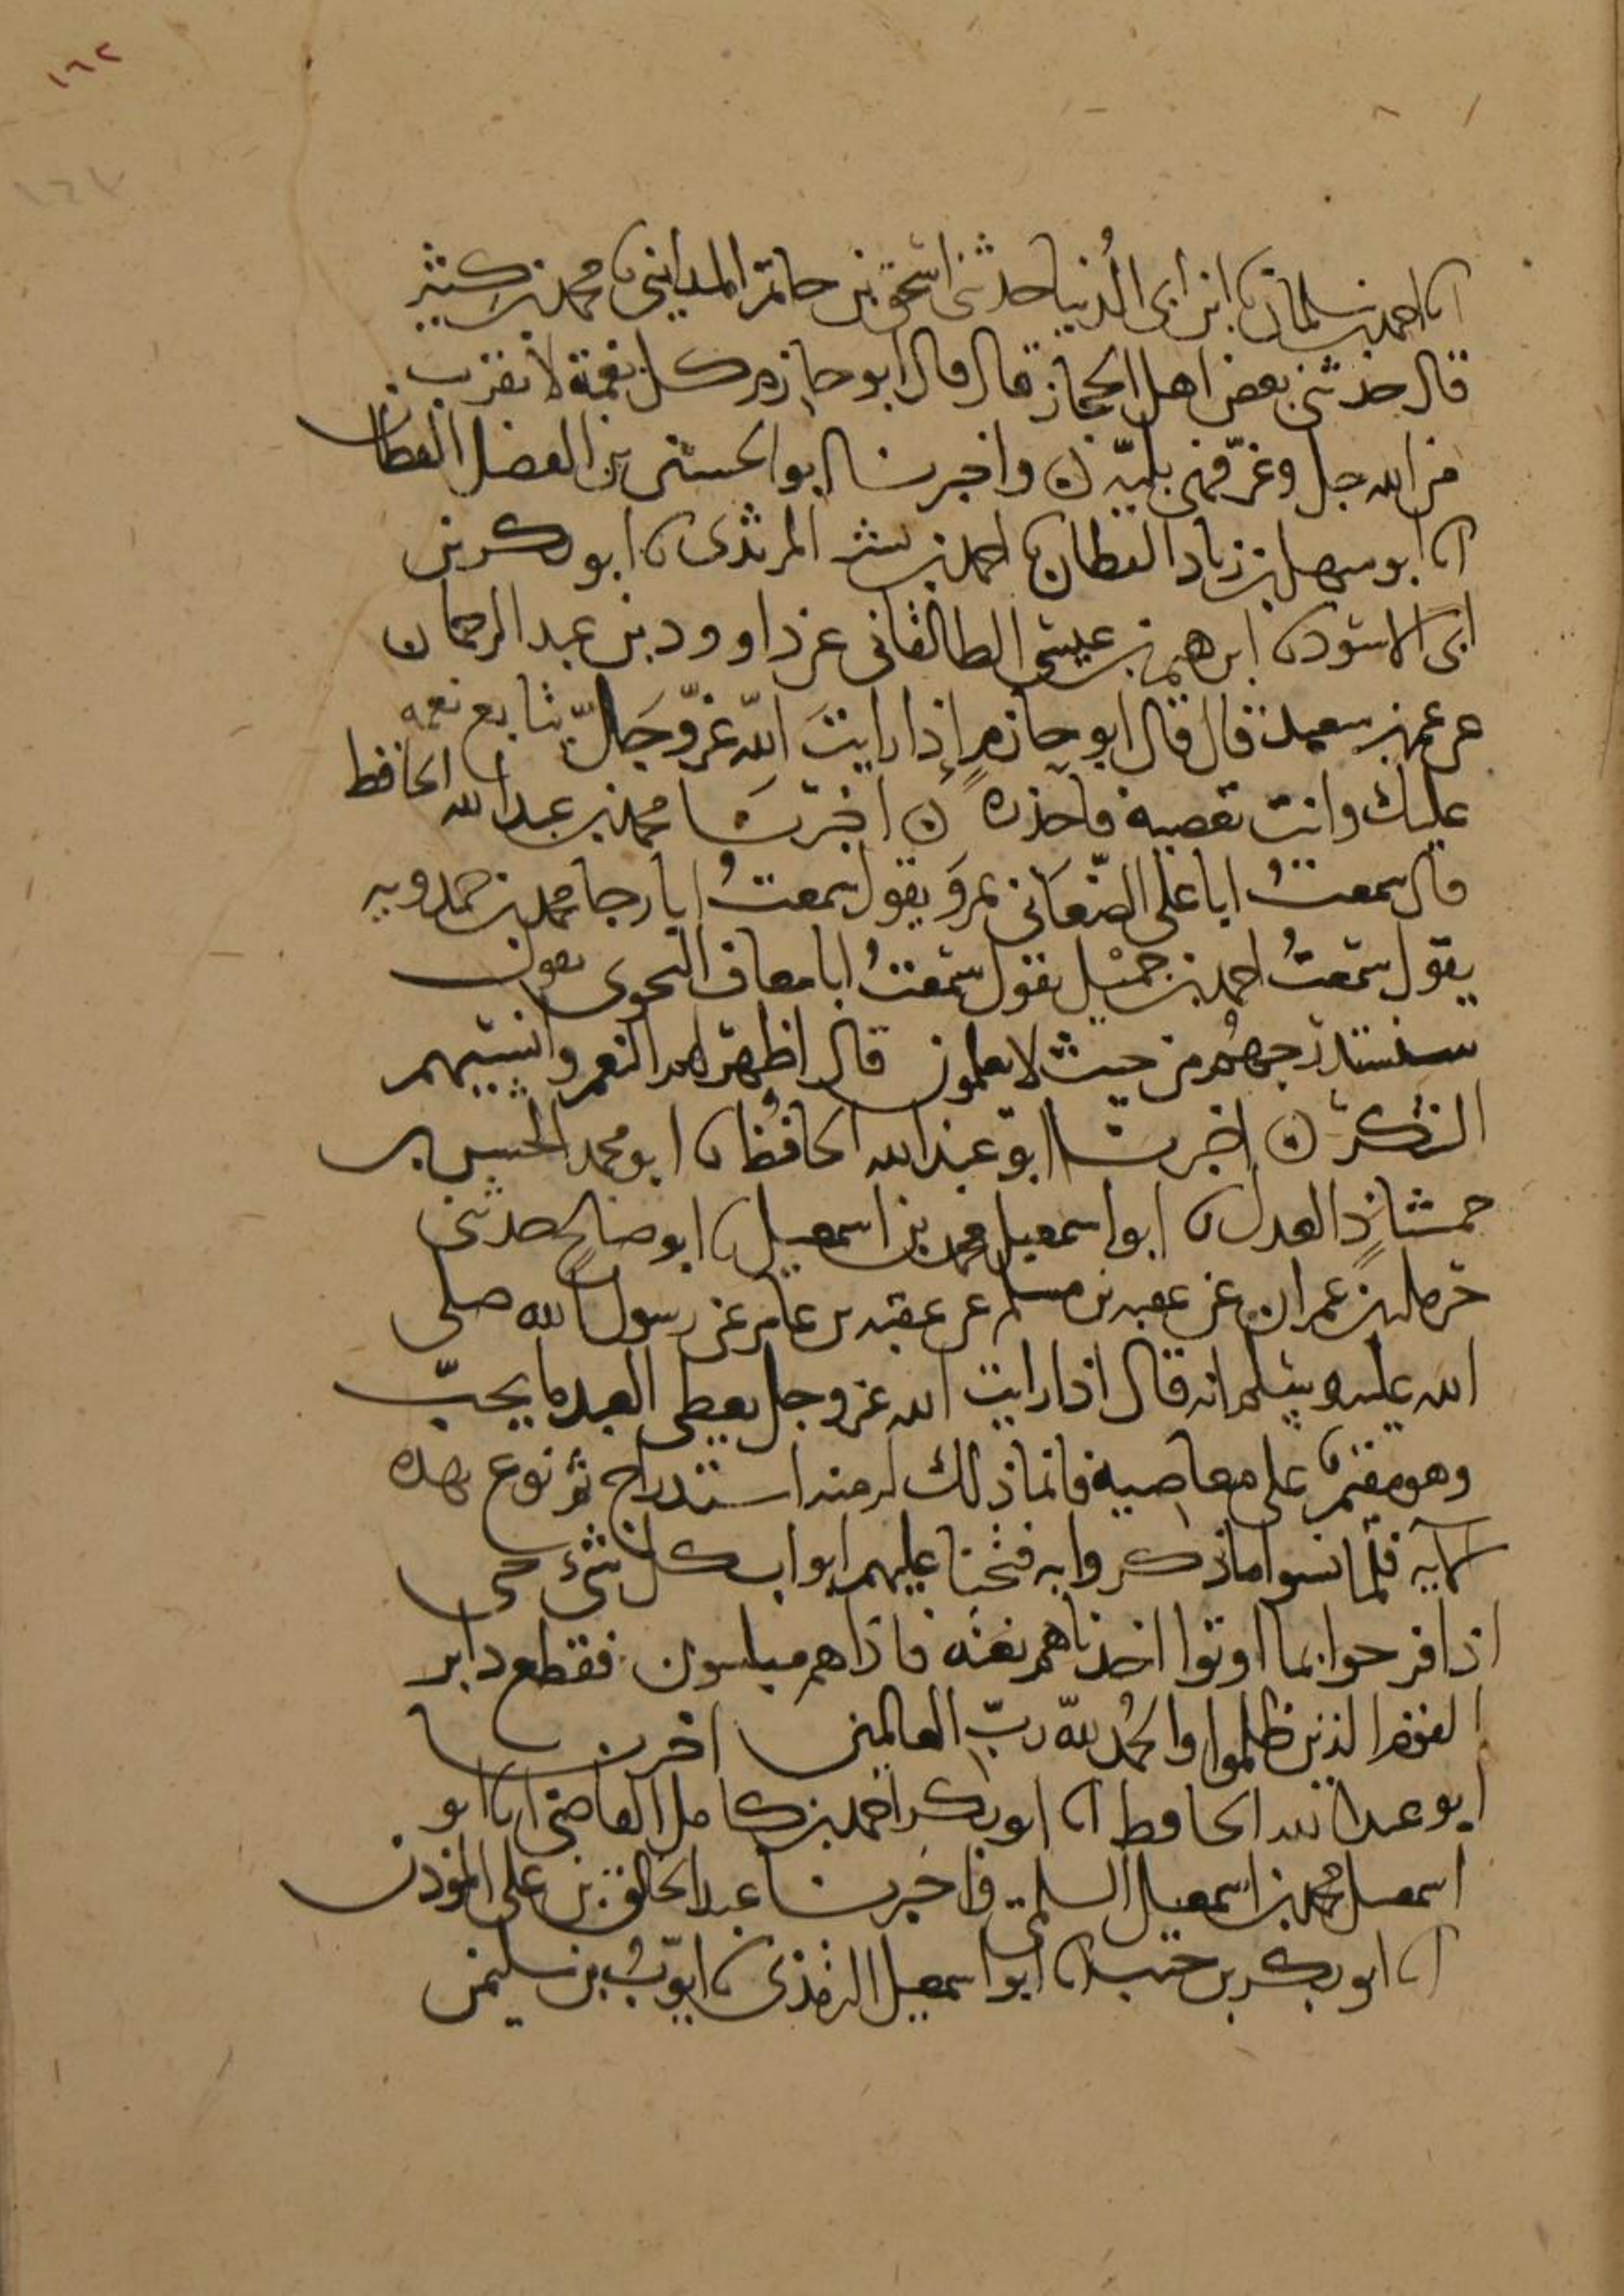 ١٦٢
١٦٢
انا احمد بن سلمان نا ابن ابي الدنيا حدثني اسحق بن حاتم المدايني نا محمد بن كثير
قال حدثني بعض اهل الحجاز قال قال ابو حازم كل نعمة لا تقرب
من الله جل وعز فهي بلية ن واخبرنا ابو الحسين بن الفضل القطان
انا ابو سهل بن زياد القطان نا احمد بن بشر المرثدي نا ابو بكر بن
ابي الاسود نا ابرهيم بن عيسى الطالقاني عن داوود بن عبد الرحمان
عن عمر بن سعيد قال قال ابو حازم إذا رايتَ الله عزّ وجَلّ يتابع نعمه
عليك وانت تعصيه فاحذره ن اخبرنَا محمد بن عبد الله الحافظ
قال سمعتُ ابا علي الصّغَاني بمروَ يقول سمعتُ ابا رجا محمد بن حمدويه
يقول سمعتُ احمد بن جميل يقول سمعتُ ابا معاذ النحوي يقول
سنستدرجهُم من حيث لا يعلمون قال اظهر لهم النعم وانسيهم
الشكر ن اخبرنا ابو عبد الله الحافظ نا ابو محمد الحسن بن
حمشاذ العدل نا ابو اسمعيل محمد بن اسمعيل نا ابو صالح حدثني
حرملة بن عمران عن عقبه بن مسلم عن عقبه بن عامر عن رسول الله صلى
الله عليه وسلم انه قال اذا رايت الله عز وجل يعطي العبد ما يحبّ
وهو مقيم على معاصيه فانما ذلك له منه استدراج ثم نزع بهذه
الآيه فلما نسوا ما ذكروا به فتحنا عليهم ابواب كل شيء حتى
اذا فرحوا بما اوتوا اخذناهم بغتة فاذا هم مبلسون فقطع دابر
القوم الذين ظلموا والحمُد لله ربّ العالمين اخبرنا
ابو عبد الله الحافظ انا ابو بكر احمد بن كامل القاضي انا ابو
اسمعيل محمد بن اسمعيل السلمي واخبرنا عبد الخالق بن علي الموذن
انا ابو بكر بن خنب نا ابو اسمعيل الترمذي نا ايوّبُ بن سليمن